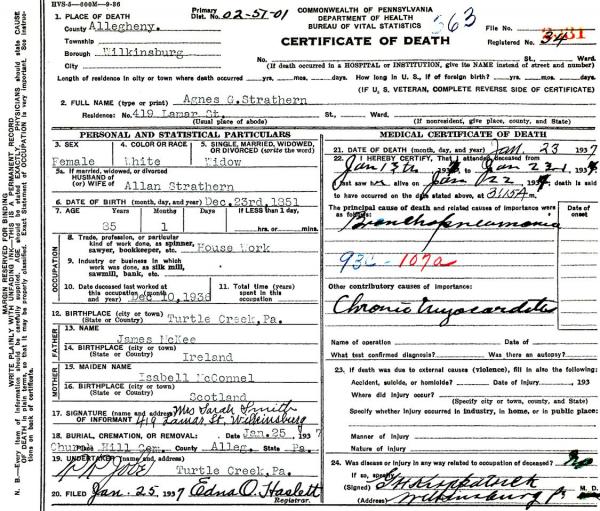 HVS-5—500M—9-36
WRITE PLAINLY WITH UNFADING INK—THIS IS A PERMANENT RECORD
MARGIN RESERVED FOR BINDING
N. B.—Every item of information should be carefully supplied. AGE should be stated EXACTLY. PHYSICIANS should state CAUSE OF DEATH in plain terms, so that it may be properly classified. Exact Statement of OCCUPATION is very important. See instructions on back of certificate.
Primary
Dist. No. 02-57-01
COMMONWEALTH OF PENNSYLVANIA
DEPARTMENT OF HEALTH
BUREAU OF VITAL STATISTICS
CERTIFICATE OF DEATH
563
File No.
Registered No. 34
1. PLACE OF DEATH
County Allegheny.
Township
Borough Wilkinsburg
City
No. St., Ward.
(If death occurred in a HOSPITAL or INSTITUTION, give its NAME instead of street and number)
Length of residence in city or town where death occurred yrs. mos. days. How long in U. S., if of foreign birth? yrs. mos. days.
(IF U. S. VETERAN, COMPLETE REVERSE SIDE OF CERTIFICATE)
2. FULL NAME (type or print) Agnes G. Strathern
Residence: No. 419 Lamar St. St., Ward.
(Usual place of abode) (If nonresident, give place, county, and State)
PERSONAL AND STATISTICAL PARTICULARS
3. SEX
Female
4. COLOR OR RACE
White
5. SINGLE, MARRIED, WIDOWED, OR DIVORCED (write the word)
Widow
5a. If married, widowed, or divorced
HUSBAND of
(or) WIFE of Allan Strathern
6. DATE OF BIRTH (month, day, and year) Dec. 23rd, 1851
7. AGE Years Months Days If LESS than 1 day,
85 1 hrs. or mins.
OCCUPATION
8. Trade, profession, or particular
kind of work done, as spinner,
sawyer, bookkeeper, etc. House Work
9. Industry or business in which
work was done, as silk mill,
sawmill, bank, etc.
10. Date deceased last worked at
this occupation (month
and year) Dec 10, 1936
11. Total time (years)
spent in this
occupation
12. BIRTHPLACE (city or town) Turtle Creek, Pa.
(State or Country)
FATHER
13. NAME James McKee
14. BIRTHPLACE (city or town)
(State or Country) Ireland
MOTHER
15. MAIDEN NAME Isabell McConnel
16. BIRTHPLACE (city or town)
(State or Country) Scotland
17. SIGNATURE (name and address) Mrs Sarah Smith
OF INFORMANT 419 Lamar St, Wilkinsburg
18. BURIAL, CREMATION, OR REMOVAL: Date Jan. 25 1937
Church Hill Cem. County Alleg. State Pa.
19. UNDERTAKER (name, and address)
Turtle Creek, Pa.
20. FILED Jan. 25 1937 Edna O. Haslett
Registrar.
MEDICAL CERTIFICATE OF DEATH
21. DATE OF DEATH (month, day, and year) Jan. 23 1937
22. I HEREBY CERTIFY, That I attended deceased from
Jan 13th 1937 to Jan 23d 1937
I last saw alive on Jan 22 1937 death is said
to have occurred on the date stated above, at 3:15 A m.
The principal cause of death and related causes of importance were
as follows: Date of
onset
Bronchopneumonia
93c - 107a
Other contributory causes of importance:
Chronic Myocarditis
Name of operation Date of
What test confirmed diagnosis? Was there an autopsy?
23. If death was due to external causes (violence), fill in also the following:
Accident, suicide, or homicide? Date of injury , 193
Where did injury occur?
(Specify city or town, county, and State)
Specify whether injury occurred in industry, in home, or in public place.
Manner of injury
Nature of injury
24. Was disease or injury in any way related to occupation of deceased? No
If so, specify
(Signed) Kirkpatrick M. D.
(Address) Wilkinsburg Pa